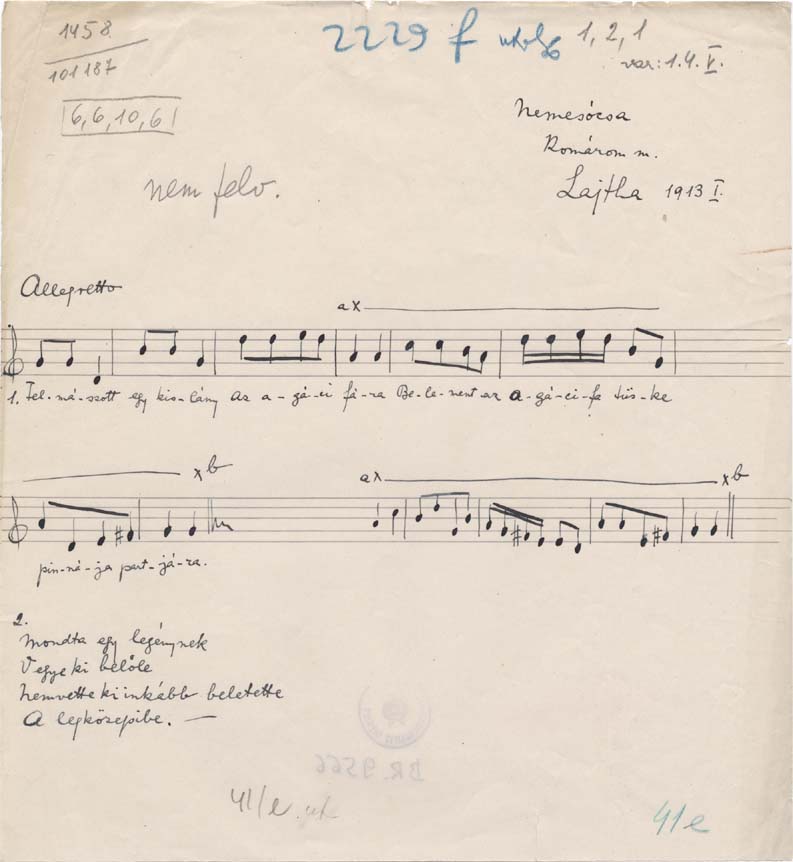 1458
101187
6,6,10,6
2229 f utolsó 1, 2, 1
var: 1.4. V.
Nemesócsa
Komárom m.
Lajtha 1913 I.
nem felv.
Allegretto
a x
1. Fel-má-szott egy kis-lány az a-gá-ci fá-ra Be-le-ment az a-gá-ci-fa tüs-ke
x b
a x x b
pin-ná-ja part-já-ra.
2.
Mondta egy legénynek
Vegye ki belőle
Nem vette ki inkább beletette
A legközepibe. —
BR. 9566
41/e
41e